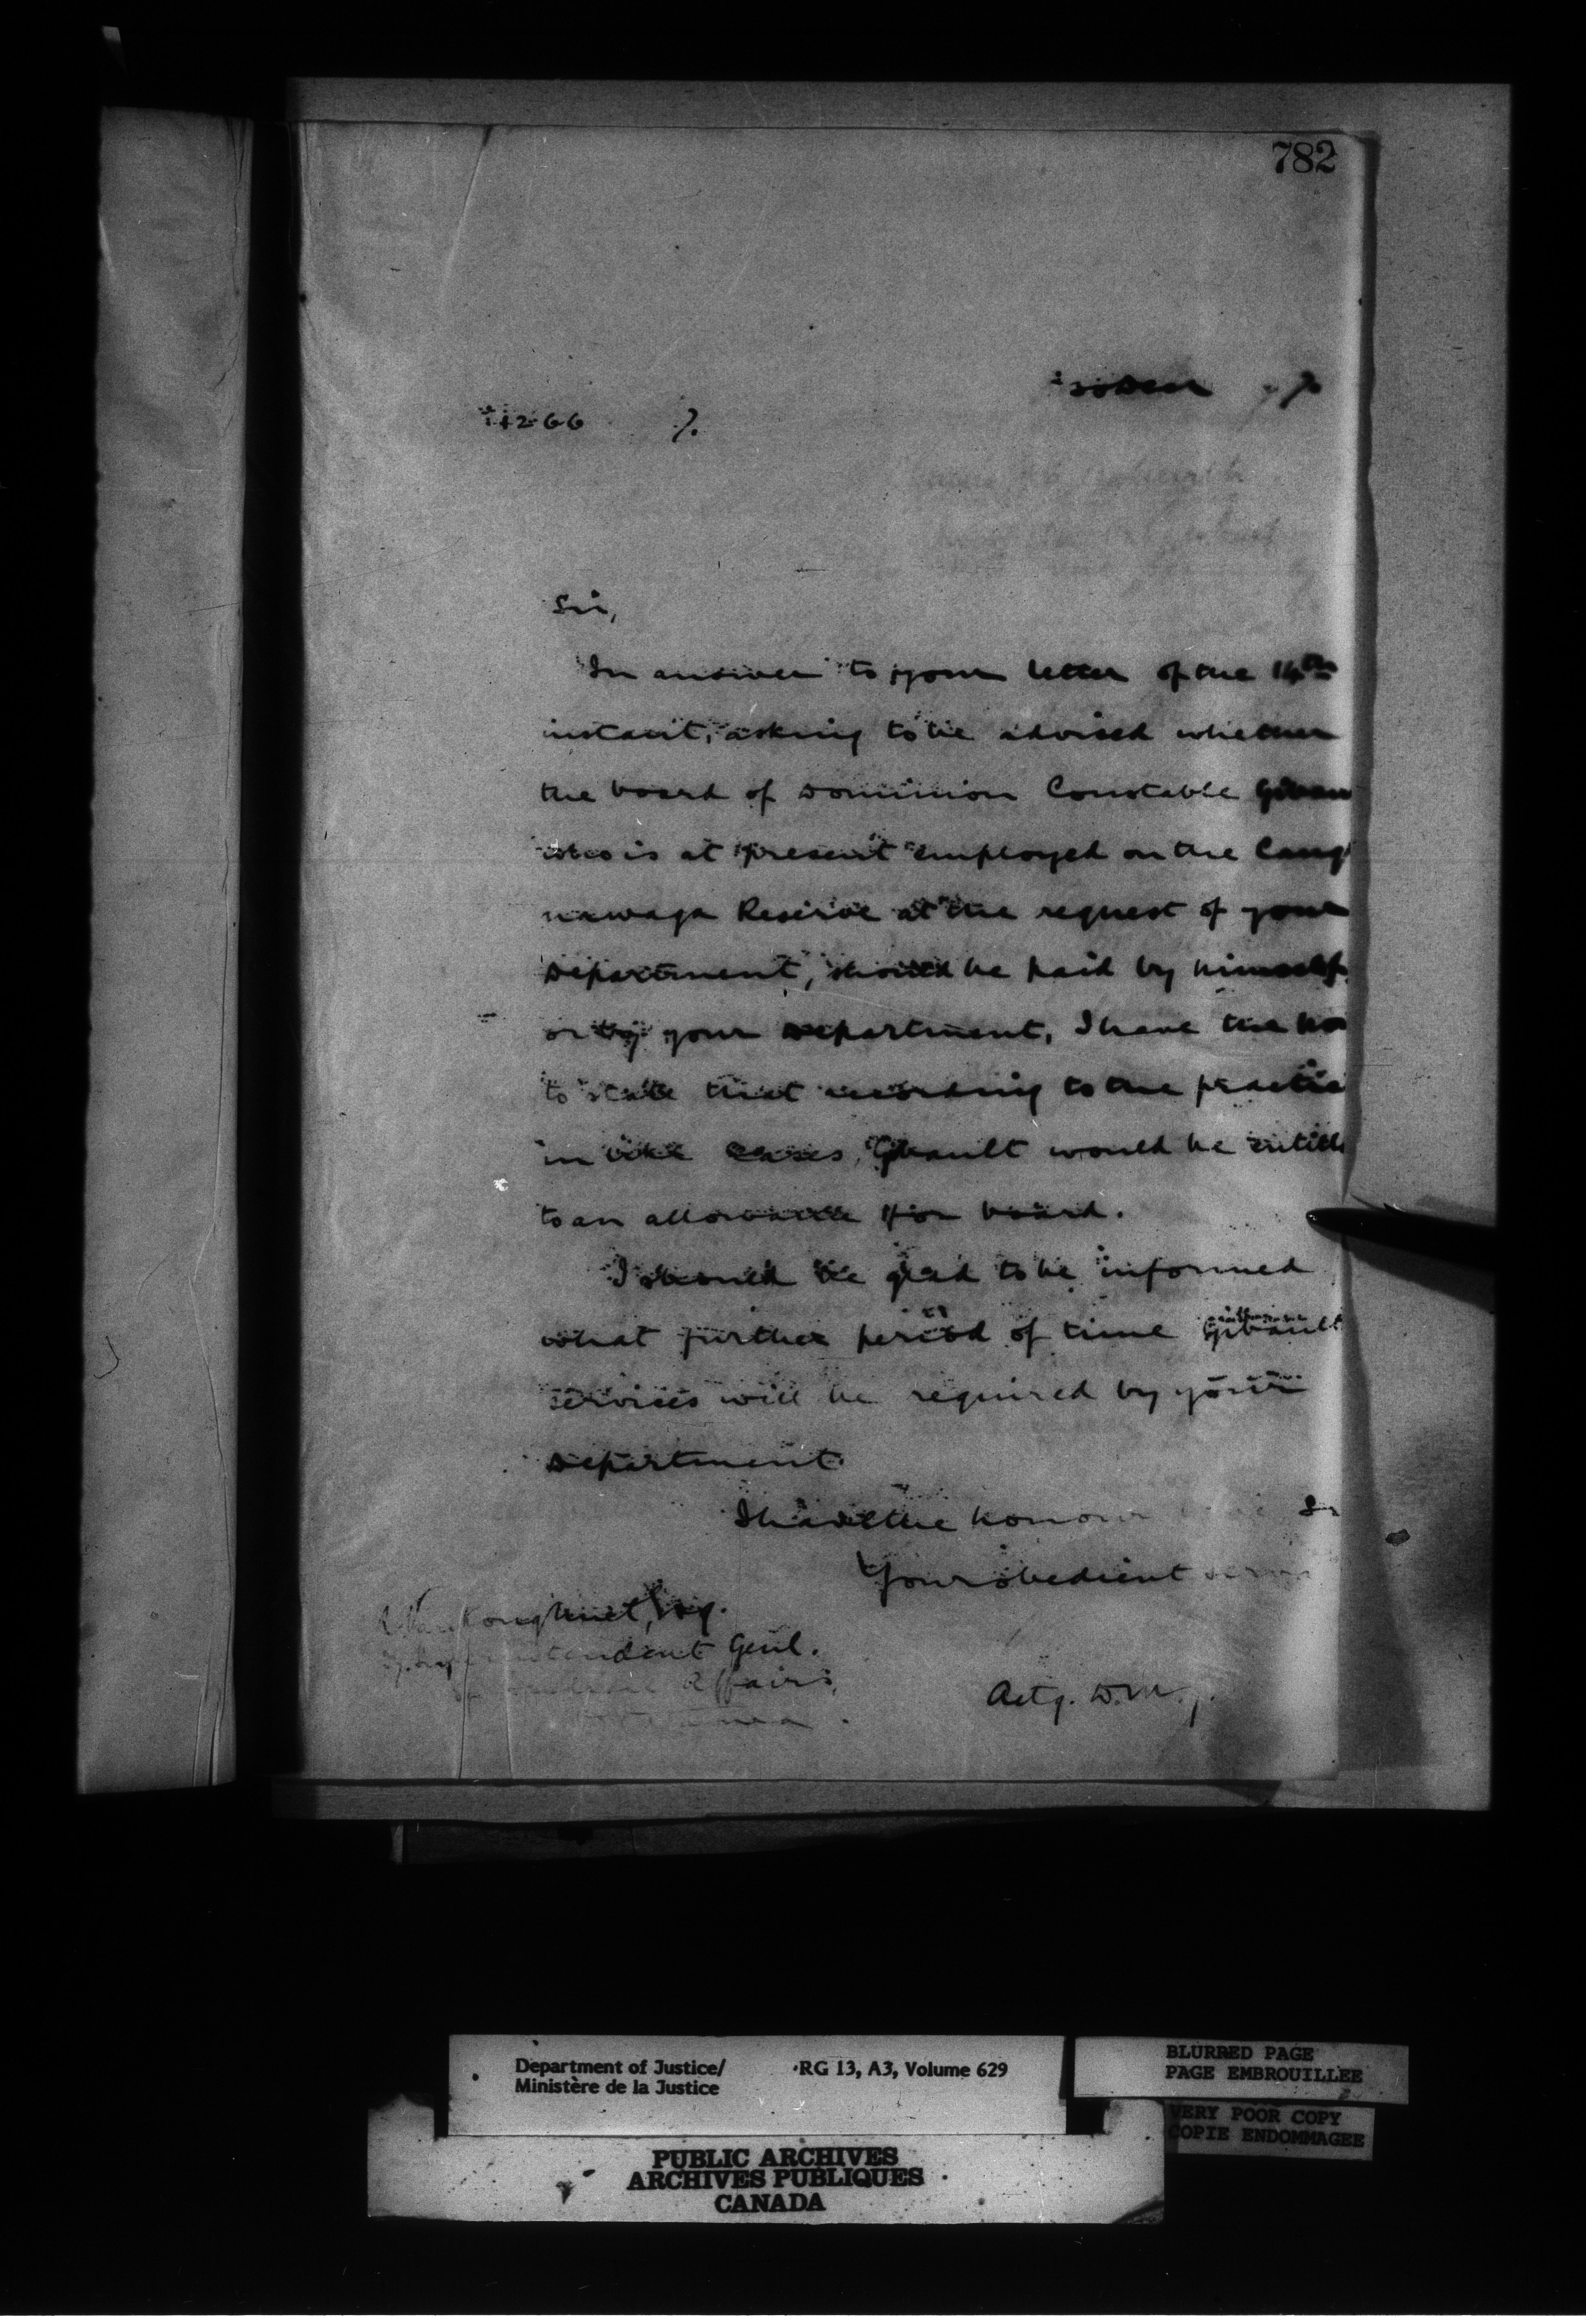 782
1266
Sir,
In answer to your letter of the 14th
instant, asking to be advised whether
the board of Dominion Constable
who is at present employed on the Caug
nawaga Reserve at the request of your
Department, should be paid by himself
or by your Department, I have the ho
to state that according to the practice
in like cases, Gibault would be entitle
to an allowance for board.
I should be glad to be informed
what further period of time Gibault
services will be required by your
Department.
I have the honour Sir
Your obedient serv
VanKoughnet, Esq.
Superintendent Genl.
Affairs,
Actg. D.M.J.
Department of Justice/
Ministère de la Justice
RG 13, A3, Volume 629
BLURRED PAGE
PAGE EMBROUILLEE
VERY POOR COPY
COPIE ENDOMMAGEE
PUBLIC ARCHIVES
ARCHIVES PUBLIQUES
CANADA